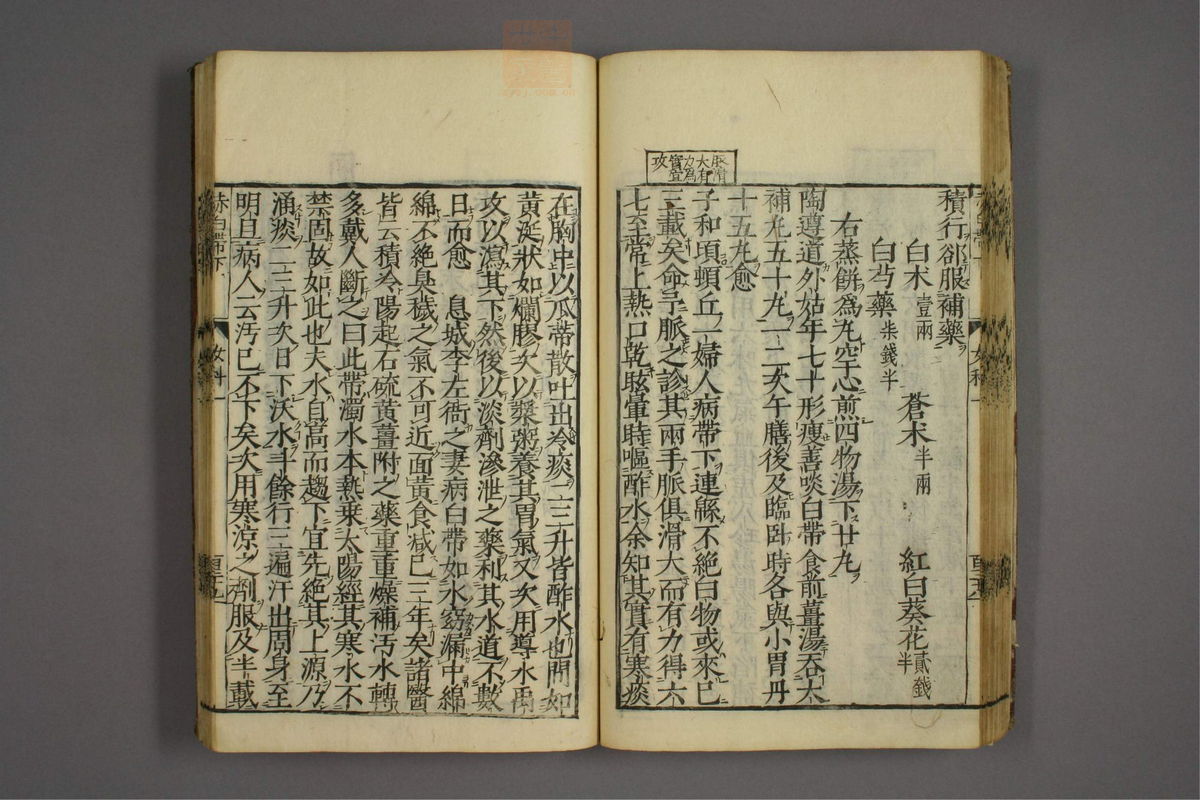 積行郤服補藥
白朮壹兩 蒼朮半兩 紅白葵花貳錢半
白芍藥柒錢半
右蒸餅爲丸空心煎四物湯下廿丸
陶遵道外姑年七十形瘦善啖白帶食前薑湯吞大
補丸五十丸一二次午膳後及臨臥時各與小胃丹
十五丸愈
子和頃頓丘一婦人病帶下連緜不絶白物或來已
三載矣命予脈之診其兩手脈俱滑大而有力得六
七至常上熱口乾眩暈時嘔酢水余知其實有寒痰
脈滑
大有
力爲
實宜
攻
在胸中以瓜蒂散吐出冷痰二三升皆酢水也間如
黃涎狀如爛膠次以漿粥養其胃氣又次用導水禹
攻以瀉其下然後以淡劑滲泄之藥利其水道不數
日而愈 息城李左衙之妻病白帶如水窈漏中綿
綿不絶臭穢之氣不可近面黃食減已三年矣諸醫
皆云積冷陽起石硫黃薑附之藥重重燥補汚水轉
多戴人斷之曰此帶濁水本熱乗太陽經其寒水不
禁固故如此也夫水自高而趨下宜先絶其上源乃
涌痰二三升次日下沃水斗餘行三遍汗出周身至
明旦病人云汚已不下矣次用寒涼之劑服及半載
赤白帶下
女科一